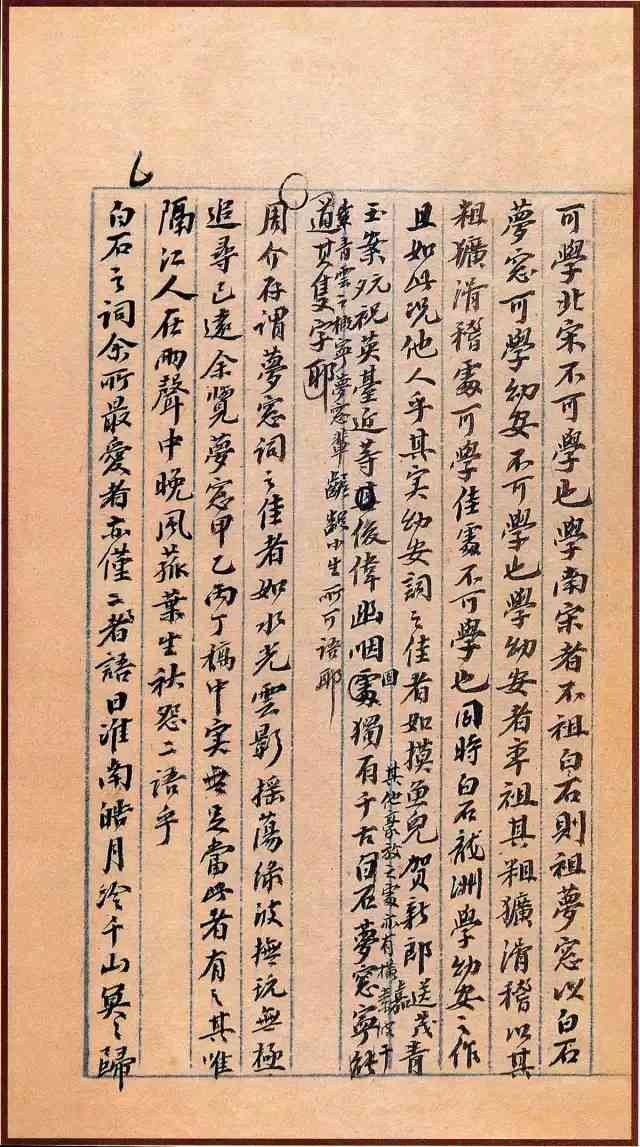 可學北宋不可學也學南宋者不祖白石則祖夢窓以白石
夢窓可學幼安不可學也學幼安者率祖其粗獷滑稽以其
粗獷滑稽處可學佳處不可學也同時白石龍洲學幼安之作
且如此況他人乎其实幼安詞之佳者如摸魚兒賀新郎送茂嘉青
玉案元夕祝英臺近等俊偉幽咽固獨有千古白石夢窓寧能
其他豪放之處亦有橫素波干
青雲之概寧夢窓輩齷齪小生所可語耶
道其隻字耶
周介存謂夢窓詞之佳者如水光雲影搖蕩綠波撫玩無極
追尋已遠余覽夢窓甲乙丙丁稿中实無足當此者有之其唯
隔江人在雨聲中晚風菰葉生秋怨二語乎
白石之詞余所最愛者亦僅二語曰淮南皓月冷千山冥冥歸